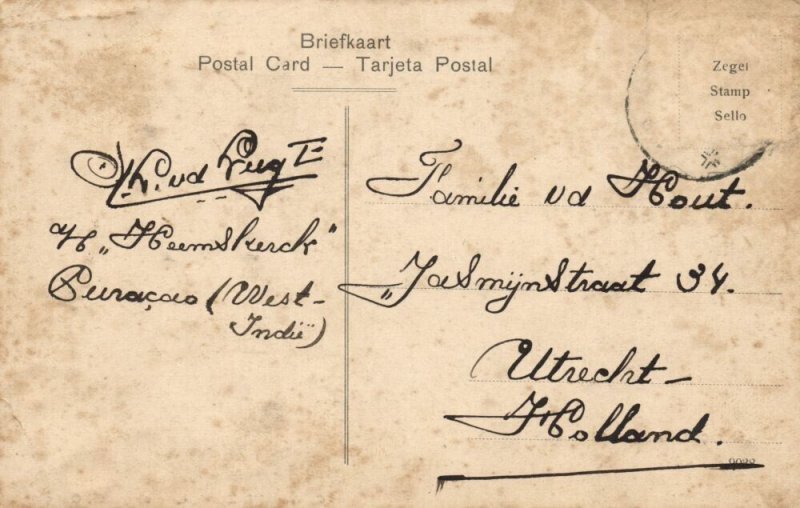 Briefkaart
Postal Card — Tarjeta Postal
Zegel
Stamp
Sello
vd Lugt
a/b „Heemskerck"
Curaçao (West-
Indië)
Familie vd Hout.
„Jasmijnstraat 34.
Utrecht—
Holland.